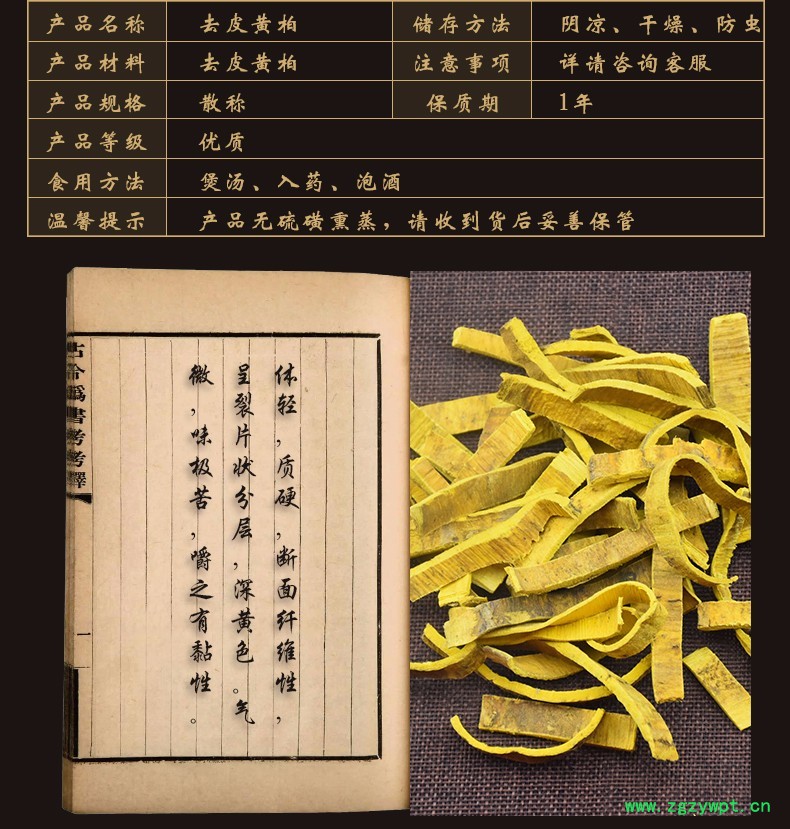 产品名称 去皮黄柏 储存方法 阴凉、干燥、防虫
产品材料 去皮黄柏 注意事项 详请咨询客服
产品规格 散称 保质期 1年
产品等级 优质
食用方法 煲汤、入药、泡酒
温馨提示 产品无硫磺熏蒸，请收到货后妥善保管
体轻，质硬，断面纤维性，
呈裂片状分层，深黄色。气
微，味极苦，嚼之有黏性。
古今伪書考考釋
一
www.zgzywpt.cn